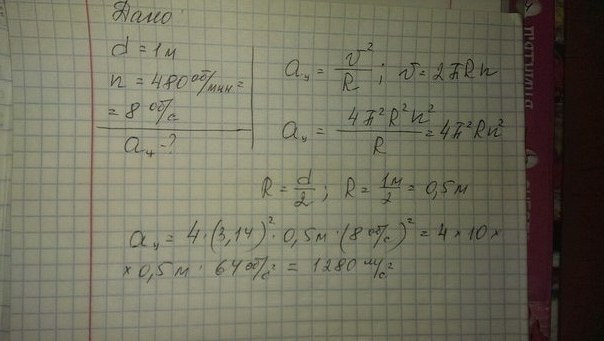 Дано:
d = 1м
n = 480 об/мин =
= 8 об/с
aц - ?
aц = v²/R ; v = 2πRn
aц = 4π²R²n²/R = 4π²Rn²
R = d/2 ; R = 1м/2 = 0,5м
aц = 4·(3,14)²·0,5м·(8 об/с)² = 4×10×
×0,5м·64 об/с² = 1280 м/с²
ПЯТНИЦА